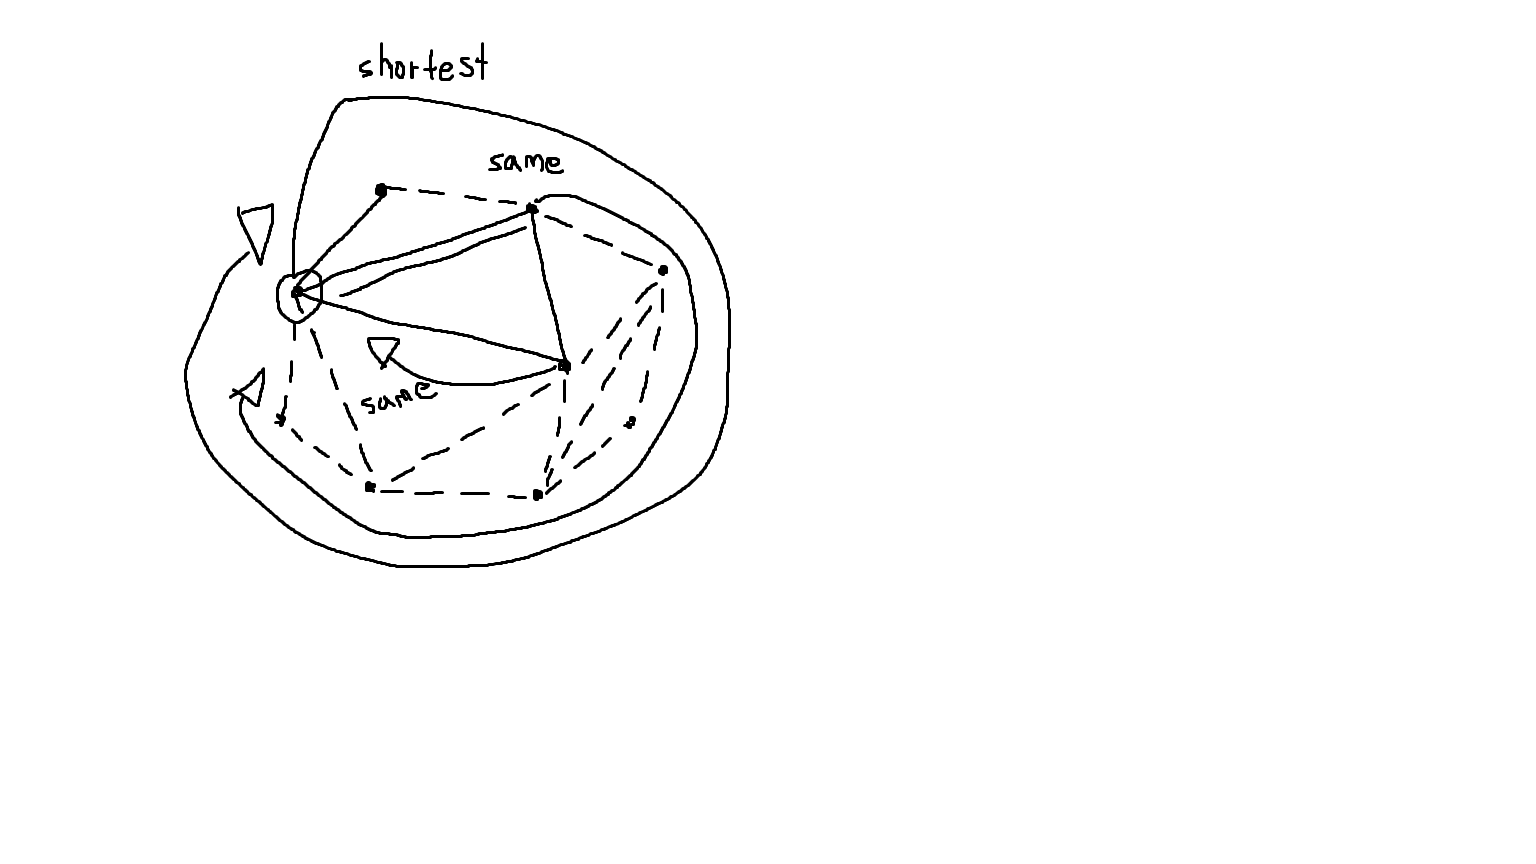 shortest
same
same